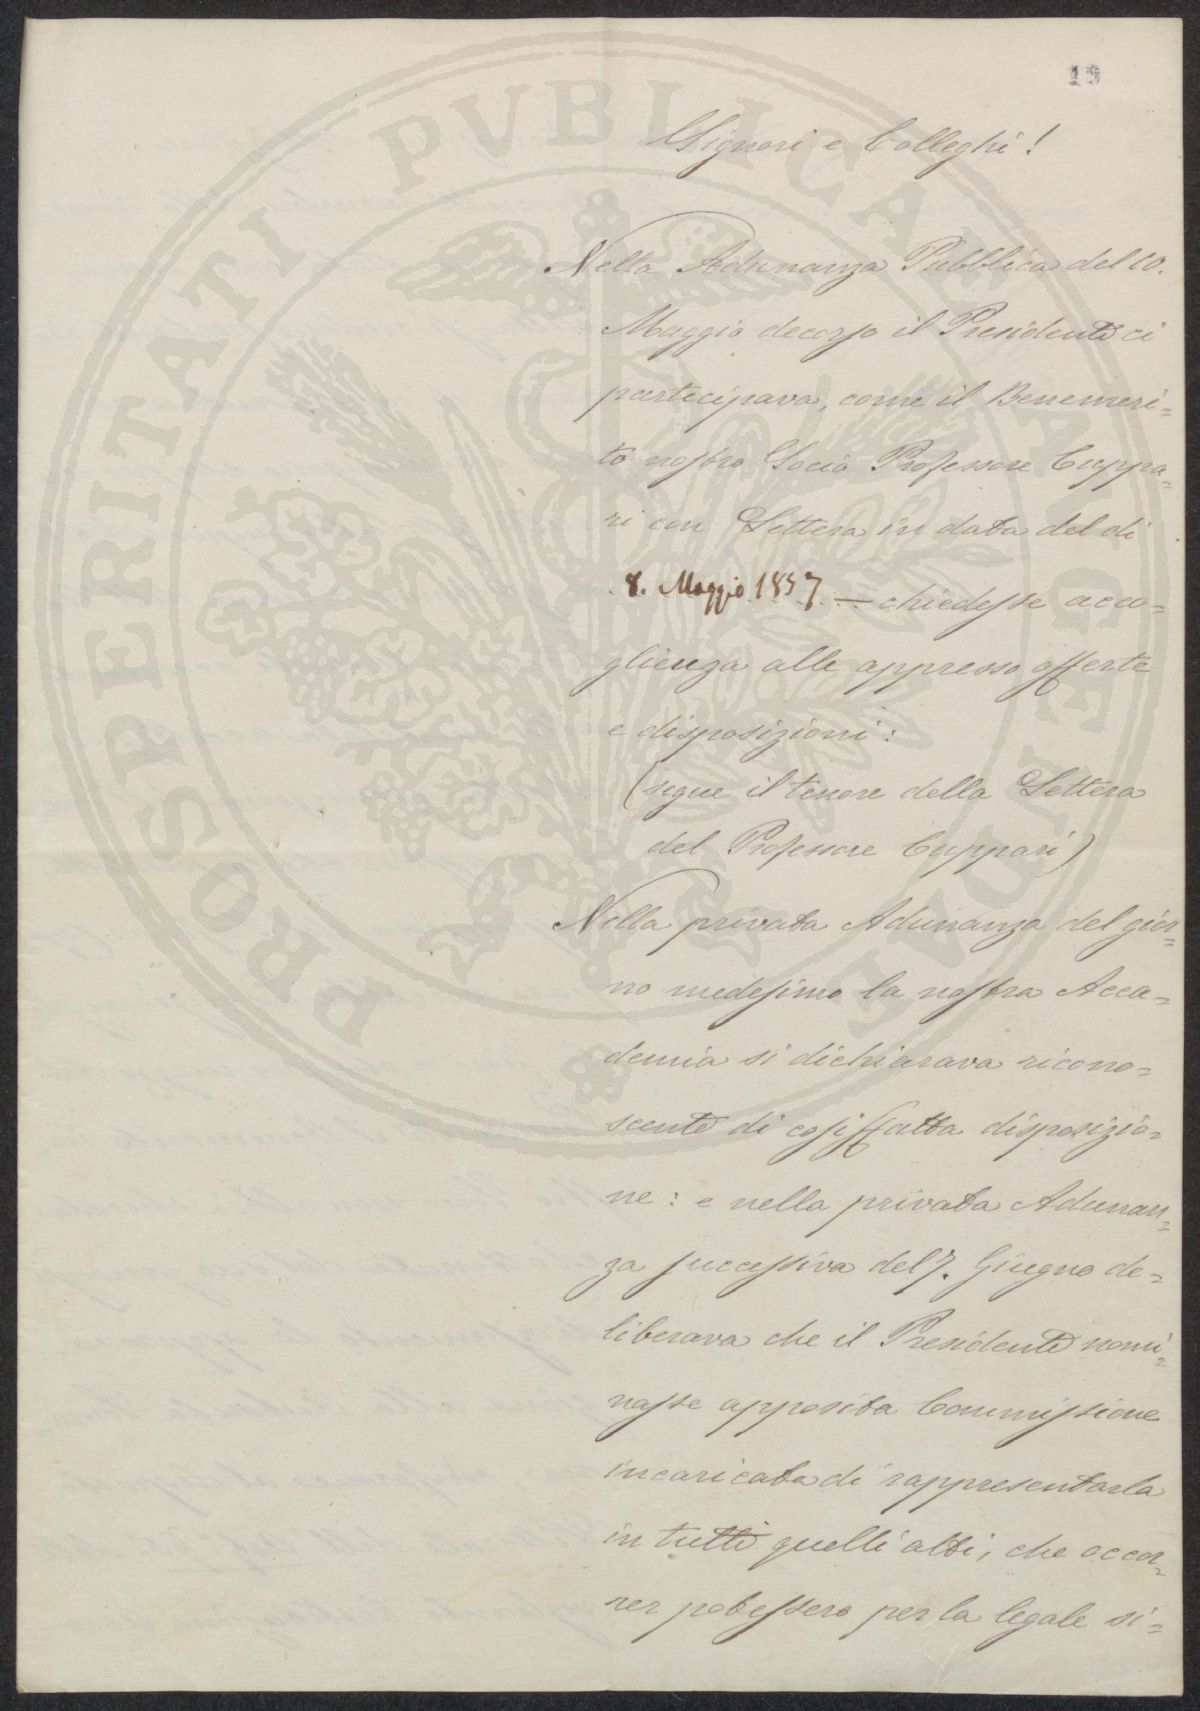 19
Signori e Colleghi!
Nella Adunanza Pubblica del 10.
Maggio decorso il Presidente ci
partecipava, come il Benemeri=
to nostro Socio Professore Cuppa=
ri con Lettera in data del di
8. Maggio 1857 — chiedesse acco=
glienza alle appresso offerte
e disposizioni:
(segue il tenore della Lettera
del Professore Cuppari)
Nella privata Adunanza del gior=
no medesimo la nostra Acca=
demia si dichiarava ricono=
scente di cosiffatta disposizio=
ne: e nella privata Adunan=
za successiva del 7. Giugno de=
liberava che il Presidente nomi=
nasse apposita Commissione
incaricata di rappresentarla
in tutti quelli atti, che occor=
rer potessero per la legale si=
PROSPERITATI PVBLICAE AVGENDAE